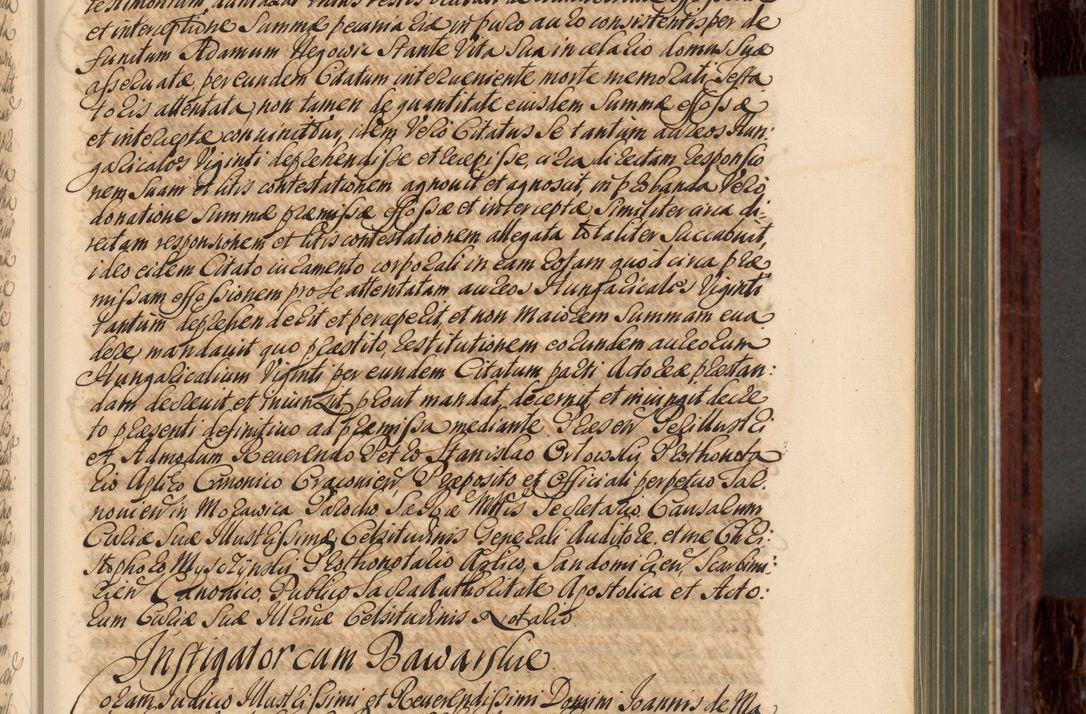 et interceptione Summæ pecuniariæ in puro auro consistentis per de
functum Adamum Hegowic Stante Vita Sua in celario domus Suæ
asservatæ, per eundem Citatum interveniente morte memorati Testa
toris attentata, non tamen de quantitate eiusdem Summæ effossæ
et interceptæ convincitur, idem Vero Citatus Se tantum aureos Hun:
garicales Viginti deprehendisse et recepisse, circa directam responsio
nem Suam et litis contestationem agnovit et agnoscit, in probanda Vero
donatione Summæ præmissæ effossæ et interceptæ Similiter circa di:
rectam responsionem et litis contestationem allegata totaliter Succubuit,
ideo eidem Citato iuramento corporali in eam rotam quod circa præ
missam effossionem pro se attentatam aureos Hungaricales Viginti
tantum deprehenderit et perceperit, et non Maiorem Summam eva
dere, mandavit, quo præstito, restitutionem eorundem aureorum
Hungaricalium Viginti per eundem Citatum parti Actoreæ præstan:
dam decrevit, et iniunxit, prout mandat, decernit et iniungit decre
to præsenti definitivo ad præmissa mediante Præsen Perillustri
et Admodum Reverendo Petro Stanislao Orlowski Prothonota
rio Aplico Canonico Cracovien Præposito et Officiali perpetuo Sar
novien in Morawica Parocho Sacræ Mttis Secretario, Causarum
Curiæ Suæ Illustrissimæ Celsitudinis Generali Auditore, et me Chri:
stophoro Myszynski Prothonotario Aplico, Sandomirien, Scarbimi:
rien Canonico, Publico Sacra Authoritate Apostolica et Acto:
rum Curiæ Suæ Illmæ Celsitudinis Notario
Instigator cum Bawarskie
Coram Iudicio Illustrissimi et Reverendissimi Domini Ioannis de Ma